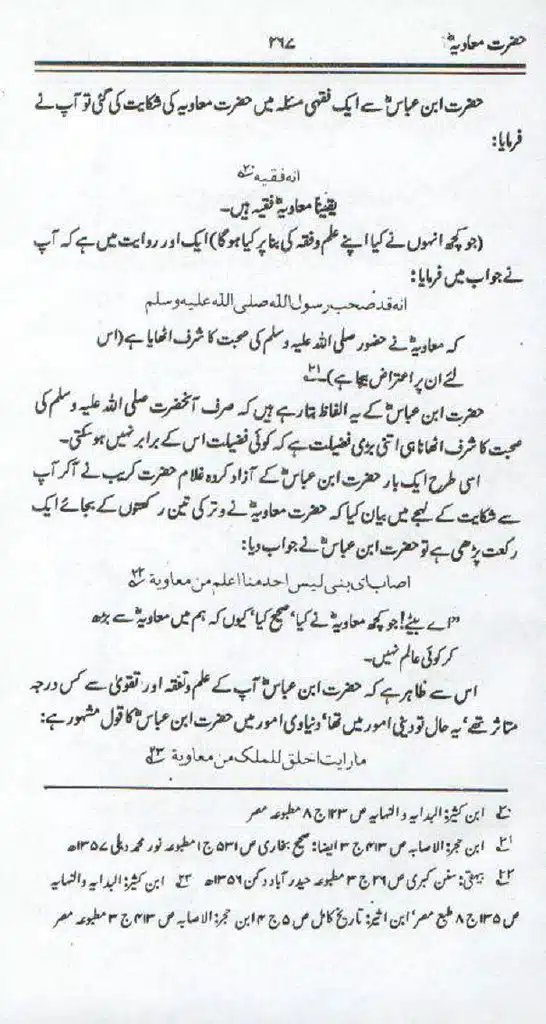 حضرت معاویہؓ ۲۶۷
حضرت ابن عباسؓ سے ایک فقہی مسئلہ میں حضرت معاویہ کی شکایت کی گئی تو آپ نے
فرمایا:
انہ فقیہ ۲۰؎
یقیناً معاویہؓ فقیہ ہیں۔
(جو کچھ انہوں نے کیا اپنے علم وفقہ کی بنا پر کیا ہوگا) ایک اور روایت میں ہے کہ آپ
نے جواب میں فرمایا:
انہ قد صحب رسول اللہ صلی اللہ علیہ وسلم
کہ معاویہؓ نے حضور صلی اللہ علیہ وسلم کی صحبت کا شرف اٹھایا ہے (اس
لئے ان پر اعتراض بیجا ہے)۔ ۲۱؎
حضرت ابن عباسؓ کے یہ الفاظ بتا رہے ہیں کہ صرف آنحضرت صلی اللہ علیہ وسلم کی
صحبت کا شرف اٹھانا ہی اتنی بڑی فضیلت ہے کہ کوئی فضیلت اس کے برابر نہیں ہو سکتی۔
اسی طرح ایک بار حضرت ابن عباسؓ کے آزاد کردہ غلام حضرت کریب نے آکر آپ
سے شکایت کے لہجے میں بیان کیا کہ حضرت معاویہؓ نے وتر کی تین رکعتوں کے بجائے ایک
رکعت پڑھی ہے تو حضرت ابن عباسؓ نے جواب دیا:
اصاب ای بنی لیس احد منا اعلم من معاویة ۲۲؎
"اے بیٹے! جو کچھ معاویہؓ نے کیا' صحیح کیا' کیوں کہ ہم میں معاویہؓ سے بڑھ
کر کوئی عالم نہیں۔
اس سے ظاہر ہے کہ حضرت ابن عباسؓ آپ کے علم وتفقہ اور تقویٰ سے کس درجہ
متاثر تھے' یہ حال تو دینی امور میں تھا' دنیاوی امور میں حضرت ابن عباسؓ کا قول مشہور ہے:
مارایت اخلق للملک من معاویة ۲۳؎
۲۰؎ ابن کثیر: البدایہ و النہایہ ص ۱۲۳ ج ۸ مطبوعہ مصر
۲۱؎ ابن حجر: الاصابہ ص ۴۱۳ ج ۳ ایضا: صحیح بخاری ص ۵۳۱ ج ۱ مطبوعہ نور محمد دہلی ۱۳۵۷ھ
۲۲؎ بیہقی: سنن کبری ص ۲۶ ج ۳ مطبوعہ حیدر آباد دکن ۱۳۵۶ھ ۲۳؎ ابن کثیر: البدایہ والنہایہ
ص ۱۳۵ ج ۸ طبع مصر' ابن اثیر: تاریخ کامل ص ۵ ج ۴ ابن حجر: الاصابہ ص ۴۱۳ ج ۳ مطبوعہ مصر